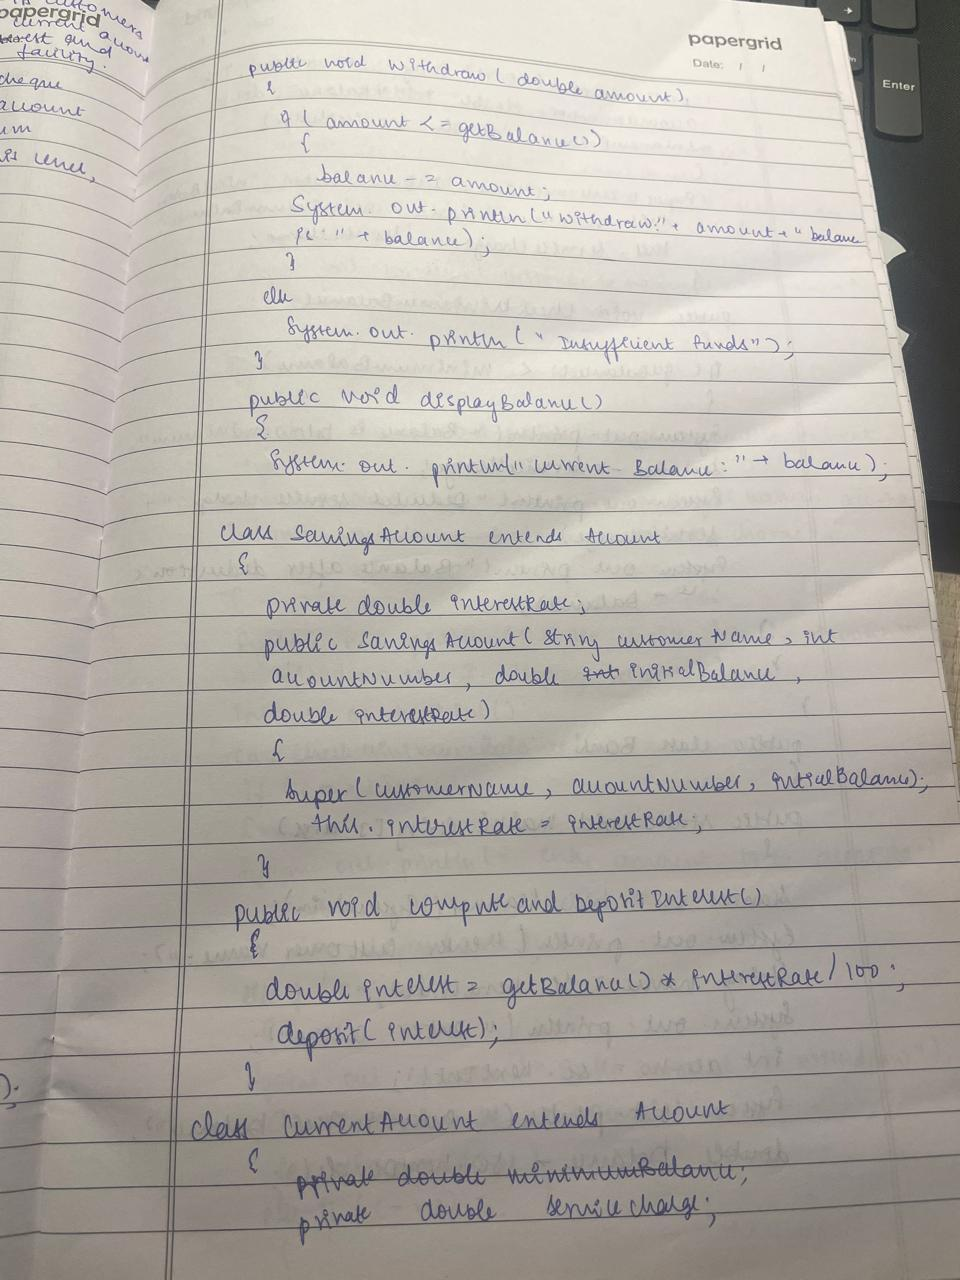 papergrid
current
est and
facility.
cheque
account
um
is level,
);
papergrid
Date: / /
public void withdraw ( double amount )
{
if ( amount <= getBalance())
{
balance -= amount;
System. out. println ("Withdraw:" + amount + " balance
is " + balance);
}
else
System. out. println ( " Insufficient funds");
}
public void displayBalance()
{
System. out. println(" Current Balance : " + balance);
class SavingsAccount extends Account
{
private double interestRate;
public SavingsAccount ( String customerName, int
accountNumber, double int initialBalance,
double interestRate)
{
super ( customerName, accountNumber, intialBalance);
this. interestRate = interestRate;
}
public void compute and Deposit Interest()
{
double interest = getBalance() * interestRate / 100;
deposit( interest);
}
class CurrentAccount extends Account
{
private double minimumBalance;
private double service charge;
Enter